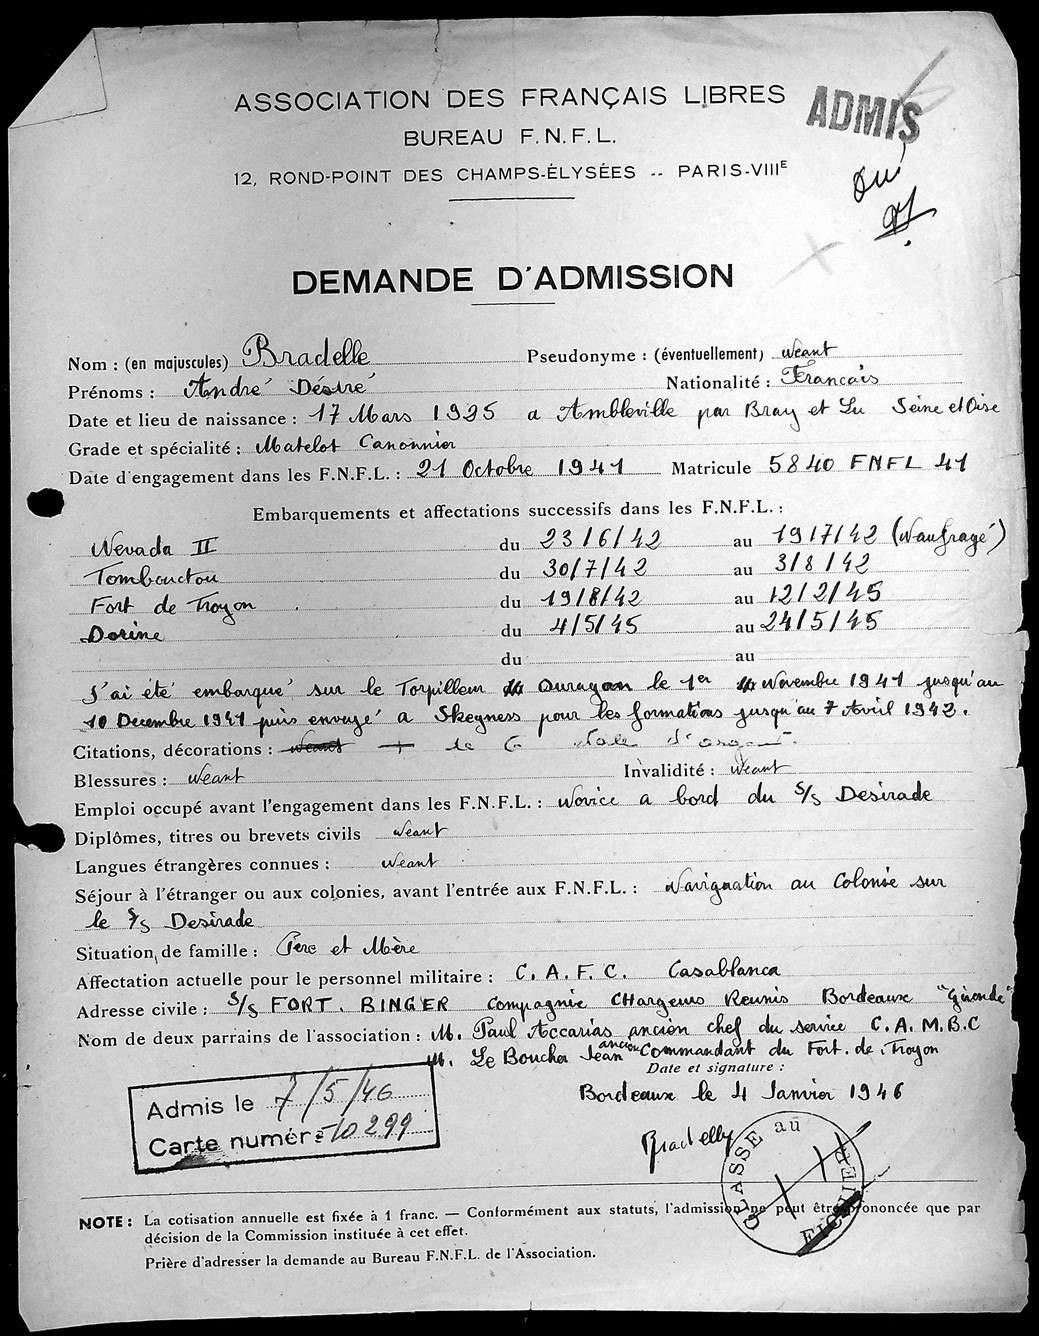 ASSOCIATION DES FRANÇAIS LIBRES
ADMIS
BUREAU F.N.F.L.
12, ROND-POINT DES CHAMPS-ÉLYSÉES -- PARIS-VIIIE
Oui
DEMANDE D'ADMISSION
Nom : (en majuscules) Bradelle Pseudonyme : (éventuellement) Néant
Prénoms : André Désiré Nationalité : Francais
Date et lieu de naissance : 17 Mars 1925 a Ambleville par Bray et Lu Seine et Oise
Grade et spécialité : Matelot Canonnier
Date d'engagement dans les F.N.F.L. : 21 Octobre 1941 Matricule 5840 FNFL 41
Embarquements et affectations successifs dans les F.N.F.L. :
Nevada II du 23/6/42 au 19/7/42 (Naufragé)
Tombouctou du 30/7/42 au 3/8/42
Fort de Troyon du 19/8/42 au 12/2/45
Dorine du 4/5/45 au 24/5/45
du au
J'ai été embarqué sur le Torpilleur Ouragan le 1er Novembre 1941 jusqu'au
10 Décembre 1941 puis envoyé a Skegness pour les formations jusqu'au 7 Avril 1942.
Citations, décorations : Néant d'argent.
Blessures : Néant Invalidité : Néant
Emploi occupé avant l'engagement dans les F.N.F.L. : Novice a bord du S/S Desirade
Diplômes, titres ou brevets civils Néant
Langues étrangères connues : Néant
Séjour à l'étranger ou aux colonies, avant l'entrée aux F.N.F.L. : Navignation au Colonie sur
le S/S Desirade
Situation de famille : Père et Mère
Affectation actuelle pour le personnel militaire : C.A.F.C. Casablanca
Adresse civile : S/S FORT. BINGER Compagnie CHargeurs Reunis Bordeaux "Gironde"
Nom de deux parrains de l'association : M. Paul Accarias ancien chef du service C.A.M.B.C
M. Le Boucher Jean ancien Commandant du Fort. de. Troyon
Date et signature :
Bordeaux le 4 Janvier 1946
Admis le 7/5/46
Carte numéro 10299
Bradelle
CLASSE au FICHIER
NOTE : La cotisation annuelle est fixée à 1 franc. — Conformément aux statuts, l'admission ne peut être prononcée que par
décision de la Commission instituée à cet effet.
Prière d'adresser la demande au Bureau F.N.F.L. de l'Association.